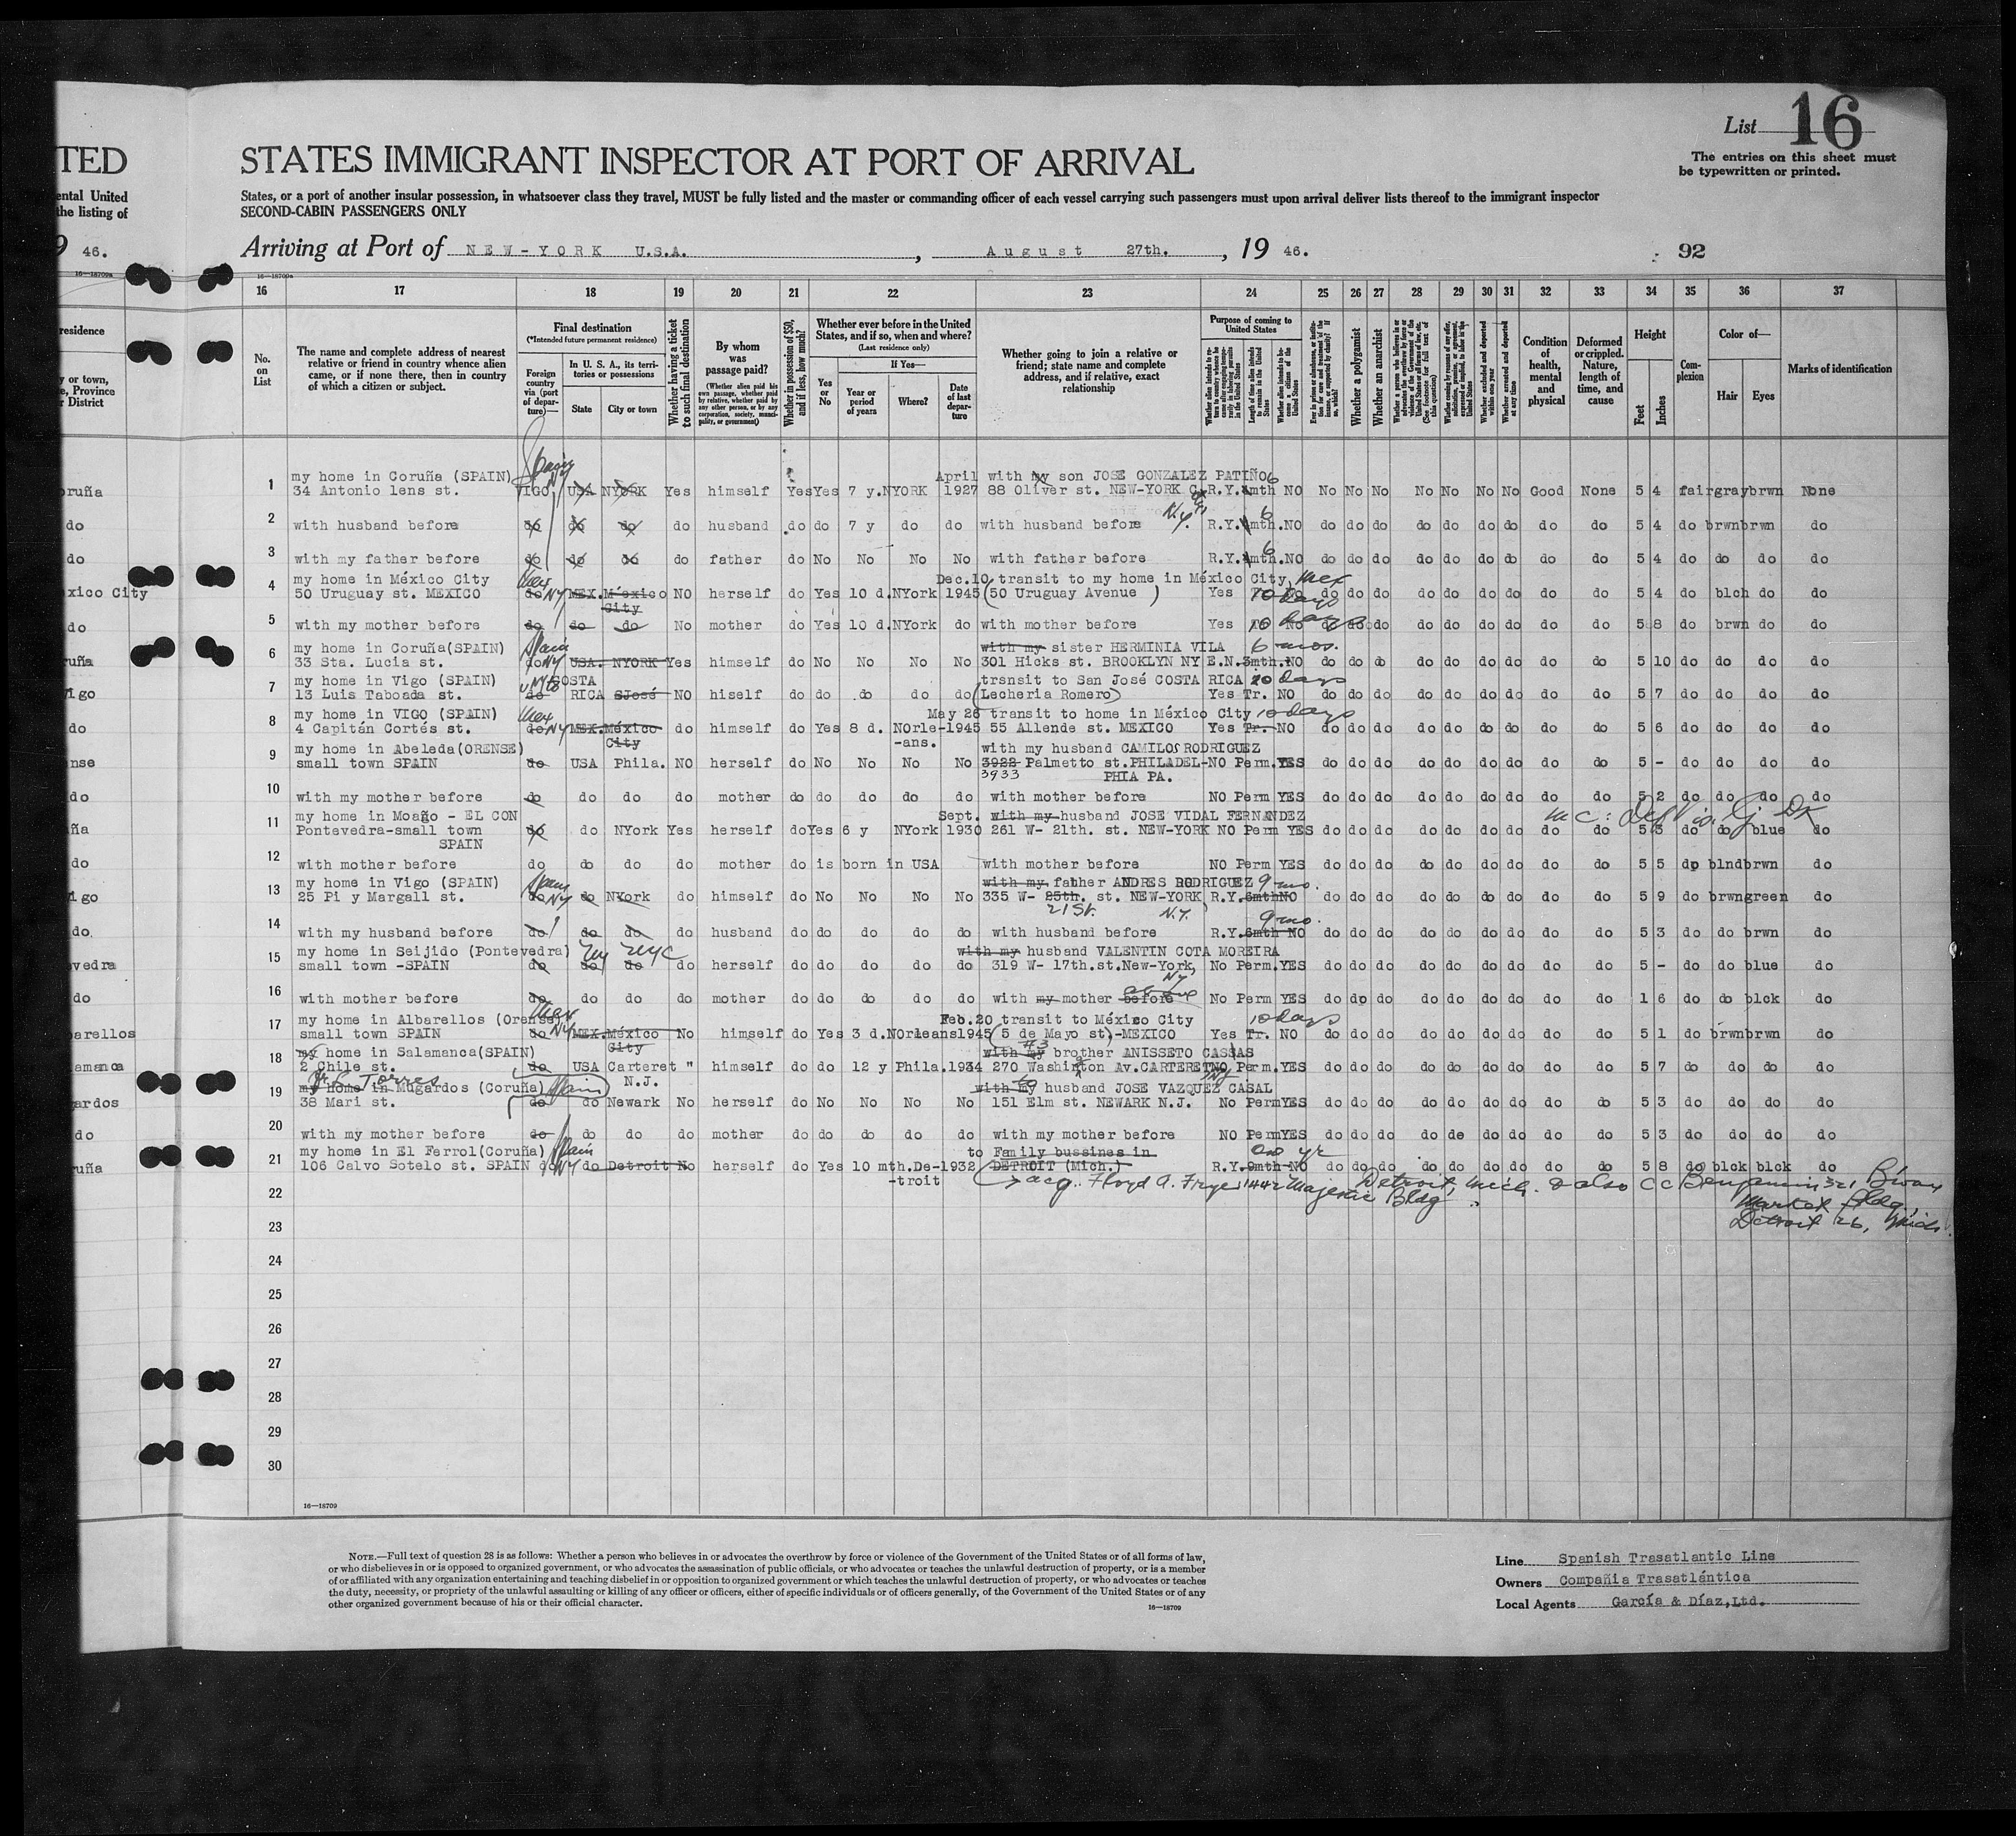 List 16
The entries on this sheet must
be typewritten or printed.
TED
STATES IMMIGRANT INSPECTOR AT PORT OF ARRIVAL
ental United
the listing of
States, or a port of another insular possession, in whatsoever class they travel, MUST be fully listed and the master or commanding officer of each vessel carrying such passengers must upon arrival deliver lists thereof to the immigrant inspector
SECOND-CABIN PASSENGERS ONLY
9 46.
Arriving at Port of NEW-YORK U.S.A. , August 27th. , 19 46.
92
16—18709a
16—18709a
16 17 18 19 20 21 22 23 24 25 26 27 28 29 30 31 32 33 34 35 36 37
residence
y or town,
e, Province
r District
No. on List
The name and complete address of nearest relative or friend in country whence alien came, or if none there, then in country of which a citizen or subject.
Final destination
(*Intended future permanent residence)
Foreign country via (port of departure)—
In U. S. A., its territories or possessions
State
City or town
Whether having a ticket to such final destination
By whom was passage paid?
(Whether alien paid his own passage, whether paid by relative, whether paid by any other person, or by any corporation, society, municipality, or government)
Whether in possession of $50, and if less, how much?
Whether ever before in the United States, and if so, when and where?
(Last residence only)
Yes or No
If Yes—
Year or period of years
Where?
Date of last departure
Whether going to join a relative or friend; state name and complete address, and if relative, exact relationship
Purpose of coming to United States
Length of time alien intends to remain in the United States
Whether alien intends to become a citizen of the United States
Whether a polygamist
Whether an anarchist
Whether excluded and deported within one year
Whether arrested and deported at any time
Condition of health, mental and physical
Deformed or crippled. Nature, length of time, and cause
Height
Feet
Inches
Complexion
Color of—
Hair
Eyes
Marks of identification
Spain
NY
my home in Coruña (SPAIN) April with my son JOSE GONZALEZ PATIÑO 6
oruña 1 34 Antonio lens st. VIGO USA NYORK Yes himself Yes Yes 7 y. NYORK 1927 88 Oliver st. NEW-YORK C. R.Y. mth NO No No No No No No No Good None 5 4 fair gray brwn None
N.Y. 6
do 2 with husband before do do do do husband do do 7 y do do with husband before R.Y. mth. NO do do do do do do do do do 5 4 do brwn brwn do
6
do 3 with my father before do do do do father do No No No No with father before R.Y. mth. NO do do do do do do do do do 5 4 do do do do
my home in México City Mex Dec.10 transit to my home in México City, Mex
xico City 4 50 Uruguay st. MEXICO do NY MEX. México City NO herself do Yes 10 d. NYork 1945 (50 Uruguay Avenue ) Yes 10 days No do do do do do do do do do 5 4 do blch do do
do 5 with my mother before do do do No mother do Yes 10 d. NYork do with mother before Yes 10 days No do do do do do do do do 5 8 do brwn do do
my home in Coruña(SPAIN) Spain with my sister HERMINIA VILA 6 mos.
ruña 6 33 Sta. Lucia st. do NY USA. NYORK Yes himself do No No No No 301 Hicks st. BROOKLYN NY E.N. 3mth. NO do do do do do do do do do 5 10 do do do do
my home in Vigo (SPAIN) NY to COSTA trsnsit to San José COSTA RICA 20 days
igo 7 13 Luis Taboada st. do RICA SJosé NO hiself do do do do do (Lecheria Romero) Yes Tr. NO do do do do do do do do do 5 7 do do do do
my home in VIGO (SPAIN) Mex May 26 transit to home in México City 10 days
do 8 4 Capitán Cortés st. do NY MEX. México City do himself do Yes 8 d. NOrle-ans. 1945 55 Allende st. MEXICO Yes Tr. NO do do do do do do do do do 5 6 do do do do
my home in Abeleda(ORENSE) with my husband CAMILOS RODRIGUEZ
nse 9 small town SPAIN do USA Phila. NO herself do No No No No 3922 Palmetto st. PHILADEL-NO Perm. YES do do do do do do do do do 5 - do do do do
3933 PHIA PA.
do 10 with my mother before do do do do mother do do do do do with mother before NO Perm YES do do do do do do do do do 5 2 do do do do
my home in Moaño - EL CON Sept. with my husband JOSE VIDAL FERNANDEZ
ña 11 Pontevedra-small town do do NYork Yes herself do Yes 6 y NYork 1930 261 W- 21th. st. NEW-YORK NO Perm YES do do do do do do do do do 5 3 do do blue do
SPAIN
do 12 with mother before do do do do mother do is born in USA with mother before NO Perm YES do do do do do do do do do 5 5 do blnd brwn do
my home in Vigo (SPAIN) Spain with my father ANDRES RODRIGUEZ 9 mo.
igo 13 25 Pi y Margall st. do NY do NYork do himself do No No No No 335 W- 25th. st. NEW-YORK R.Y. 6mth NO do do do do do do do do do 5 9 do brwn green do
21 St. N.Y. 9 mo.
do. 14 with my husband before do do do do husband do do do do do with husband before R.Y. 6mth NO do do do do do do do do do 5 3 do do brwn do
my home in Seijido (Pontevedra) NY NYC with my husband VALENTIN COTA MOREIRA
vedra 15 small town -SPAIN do do do do herself do do do do do 319 W- 17th.st.New-York, No Perm. YES do do do do do do do do do 5 - do do blue do
N.Y.
do 16 with mother before do do do do mother do do do do do with my mother before No Perm YES do do do do do do do do do 1 6 do do blck do
my home in Albarellos (Orense) Mex Feb.20 transit to México City 10 days
barellos 17 small town SPAIN do NY MEX. México City No himself do Yes 3 d. NOrleans 1945 (5 de Mayo st)-MEXICO Yes Tr. NO do do do do do do do do do 5 1 do brwn brwn do
#3
my home in Salamanca(SPAIN) with my brother ANISSETO CASSAS
amanca 18 2 Chile st. do USA Carteret N.J. " himself do do 12 y Phila. 1934 270 Washinton Av. CARTERET NO Perm. YES do do do do do do do do do 5 7 do do do do
Torres
my home in Mugardos (Coruña) Spain with my husband JOSE VAZQUEZ CASAL
gardos 19 38 Mari st. do do Newark No herself do No No No No 151 Elm st. NEWARK N.J. No Perm YES do do do do do do do do do 5 3 do do do do
do 20 with my mother before do do do do mother do do do do do with my mother before NO Perm YES do do do do de do do do do 5 3 do do do do
my home in El Ferrol(Coruña) Spain to Family bussines in One yr
ruña 21 106 Calvo Sotelo st. SPAIN do NY do Detroit No herself do Yes 10 mth. De-troit 1932 DETROIT (Mich.) R.Y. 9mth NO do do do do do do do do do 5 8 do blck blck do
acq. Floyd A. Frye 1442 Majestic Bldg. Detroit, Mich. & also C C Benjamin 321 Bway
Market Bldg.,
Detroit 26, Mich.
22
23
24
25
26
27
28
29
30
16—18709
NOTE.—Full text of question 28 is as follows: Whether a person who believes in or advocates the overthrow by force or violence of the Government of the United States or of all forms of law,
or who disbelieves in or is opposed to organized government, or who advocates the assassination of public officials, or who advocates or teaches the unlawful destruction of property, or is a member
of or affiliated with any organization entertaining and teaching disbelief in or opposition to organized government or which teaches the unlawful destruction of property, or who advocates or teaches
the duty, necessity, or propriety of the unlawful assaulting or killing of any officer or officers, either of specific individuals or of officers generally, of the Government of the United States or of any
other organized government because of his or their official character.
16—18709
Line Spanish Trasatlantic Line
Owners Compañia Trasatlántica
Local Agents García & Díaz,Ltd.